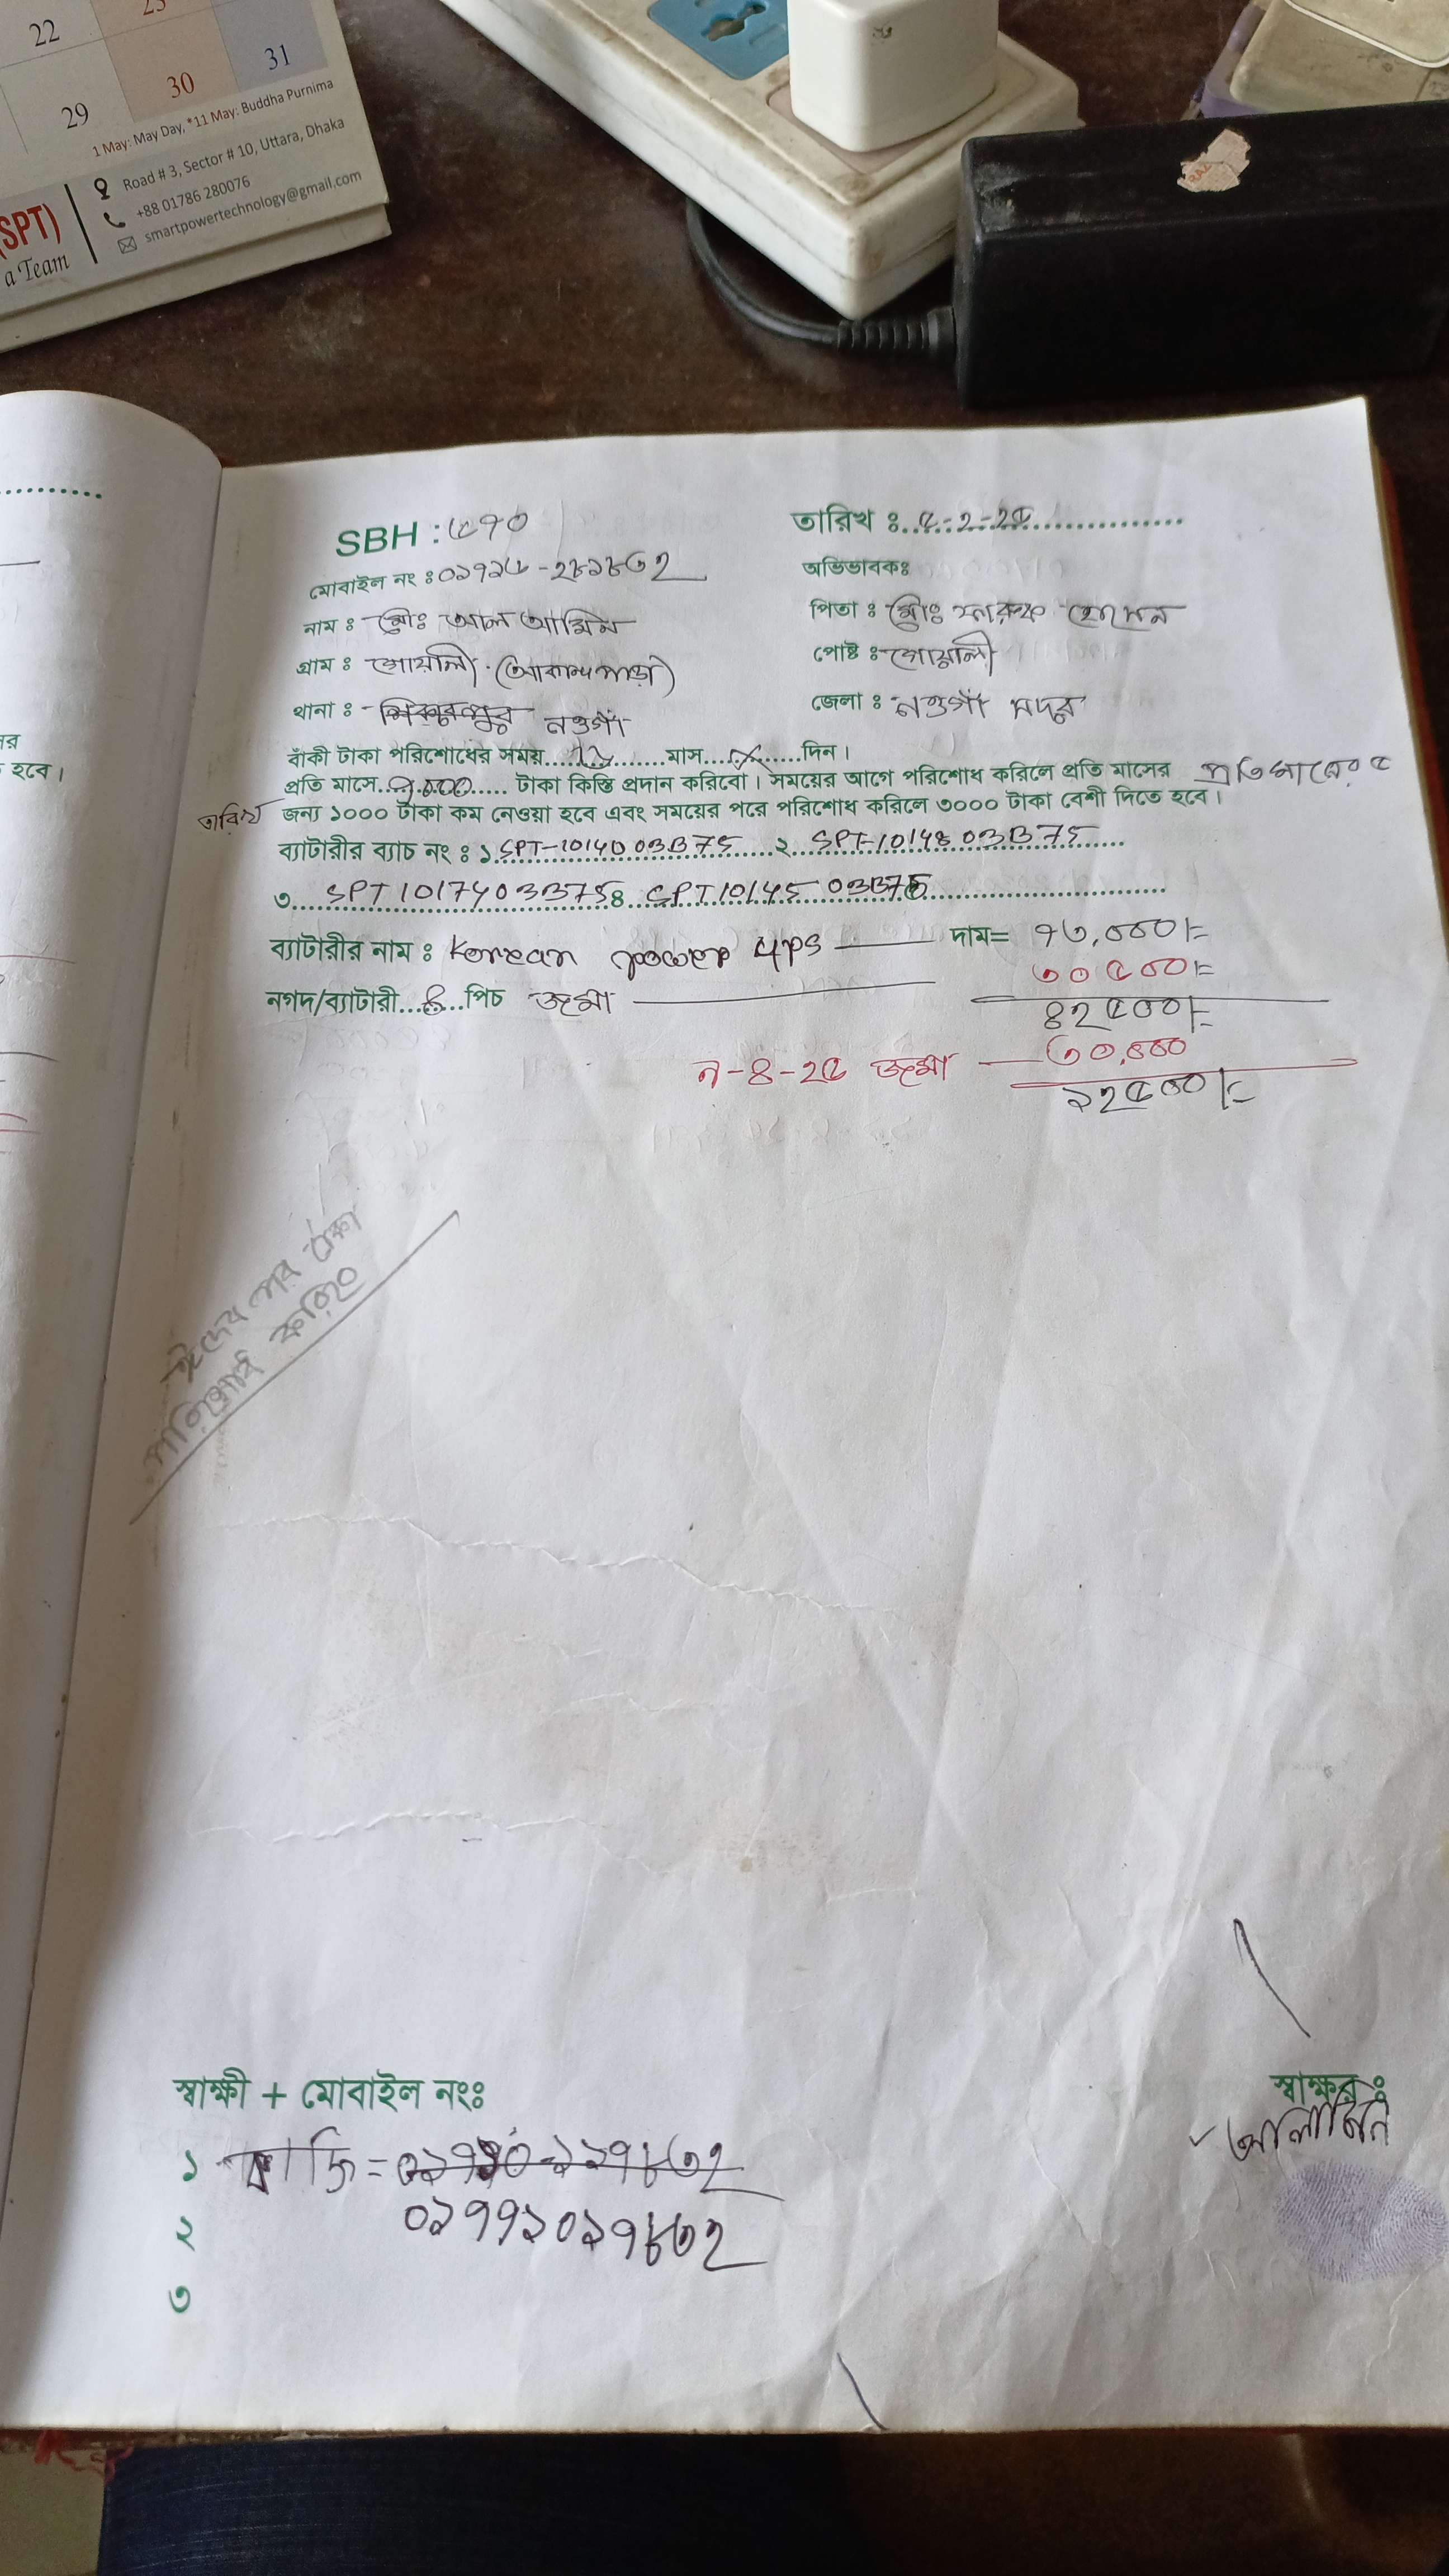 22
23
29
30
31
1 May: May Day, *11 May: Buddha Purnima
(SPT)
a Team
Road # 3, Sector # 10, Uttara, Dhaka
+88 01786 280076
smartpowertechnology@gmail.com
হবে।
SBH : ৫৭০
তারিখ ঃ ৫-২-২৫
মোবাইল নং ঃ
অভিভাবকঃ
নাম ঃ মোঃ আল আমিন
পিতা ঃ মোঃ ফারুক হোসেন
গ্রাম ঃ গোয়ালী (আকান্দপাড়া)
পোষ্ট ঃ গোয়ালী
থানা ঃ নওগাঁ
জেলা ঃ নওগাঁ সদর
বাঁকী টাকা পরিশোধের সময় মাস দিন।
প্রতি মাসে টাকা কিস্তি প্রদান করিবো। সময়ের আগে পরিশোধ করিলে প্রতি মাসের প্রতি মাসের ৫
তারিখ জন্য ১০০০ টাকা কম নেওয়া হবে এবং সময়ের পরে পরিশোধ করিলে ৩০০০ টাকা বেশী দিতে হবে।
ব্যাটারীর ব্যাচ নং ঃ ১ SPT-10140 03B75 ২ SPT-10148 03B75
৩ SPT 10174 03B75 ৪ SPT 10145 03B75
ব্যাটারীর নাম ঃ Korean power 4ps দাম= ৭৩,০০০/=
৩০৫০০/=
নগদ/ব্যাটারী ৪ পিচ জমা
৪২৫০০/=
৯-৪-২৫ জমা ৩০,০০০
১২৫০০/=
ঈদের পর টাকা
পরিশোধ করিবে
স্বাক্ষী + মোবাইল নংঃ
স্বাক্ষর ঃ
আলামিন
১
২ ০১৭৭১০১৭৮৩২
৩